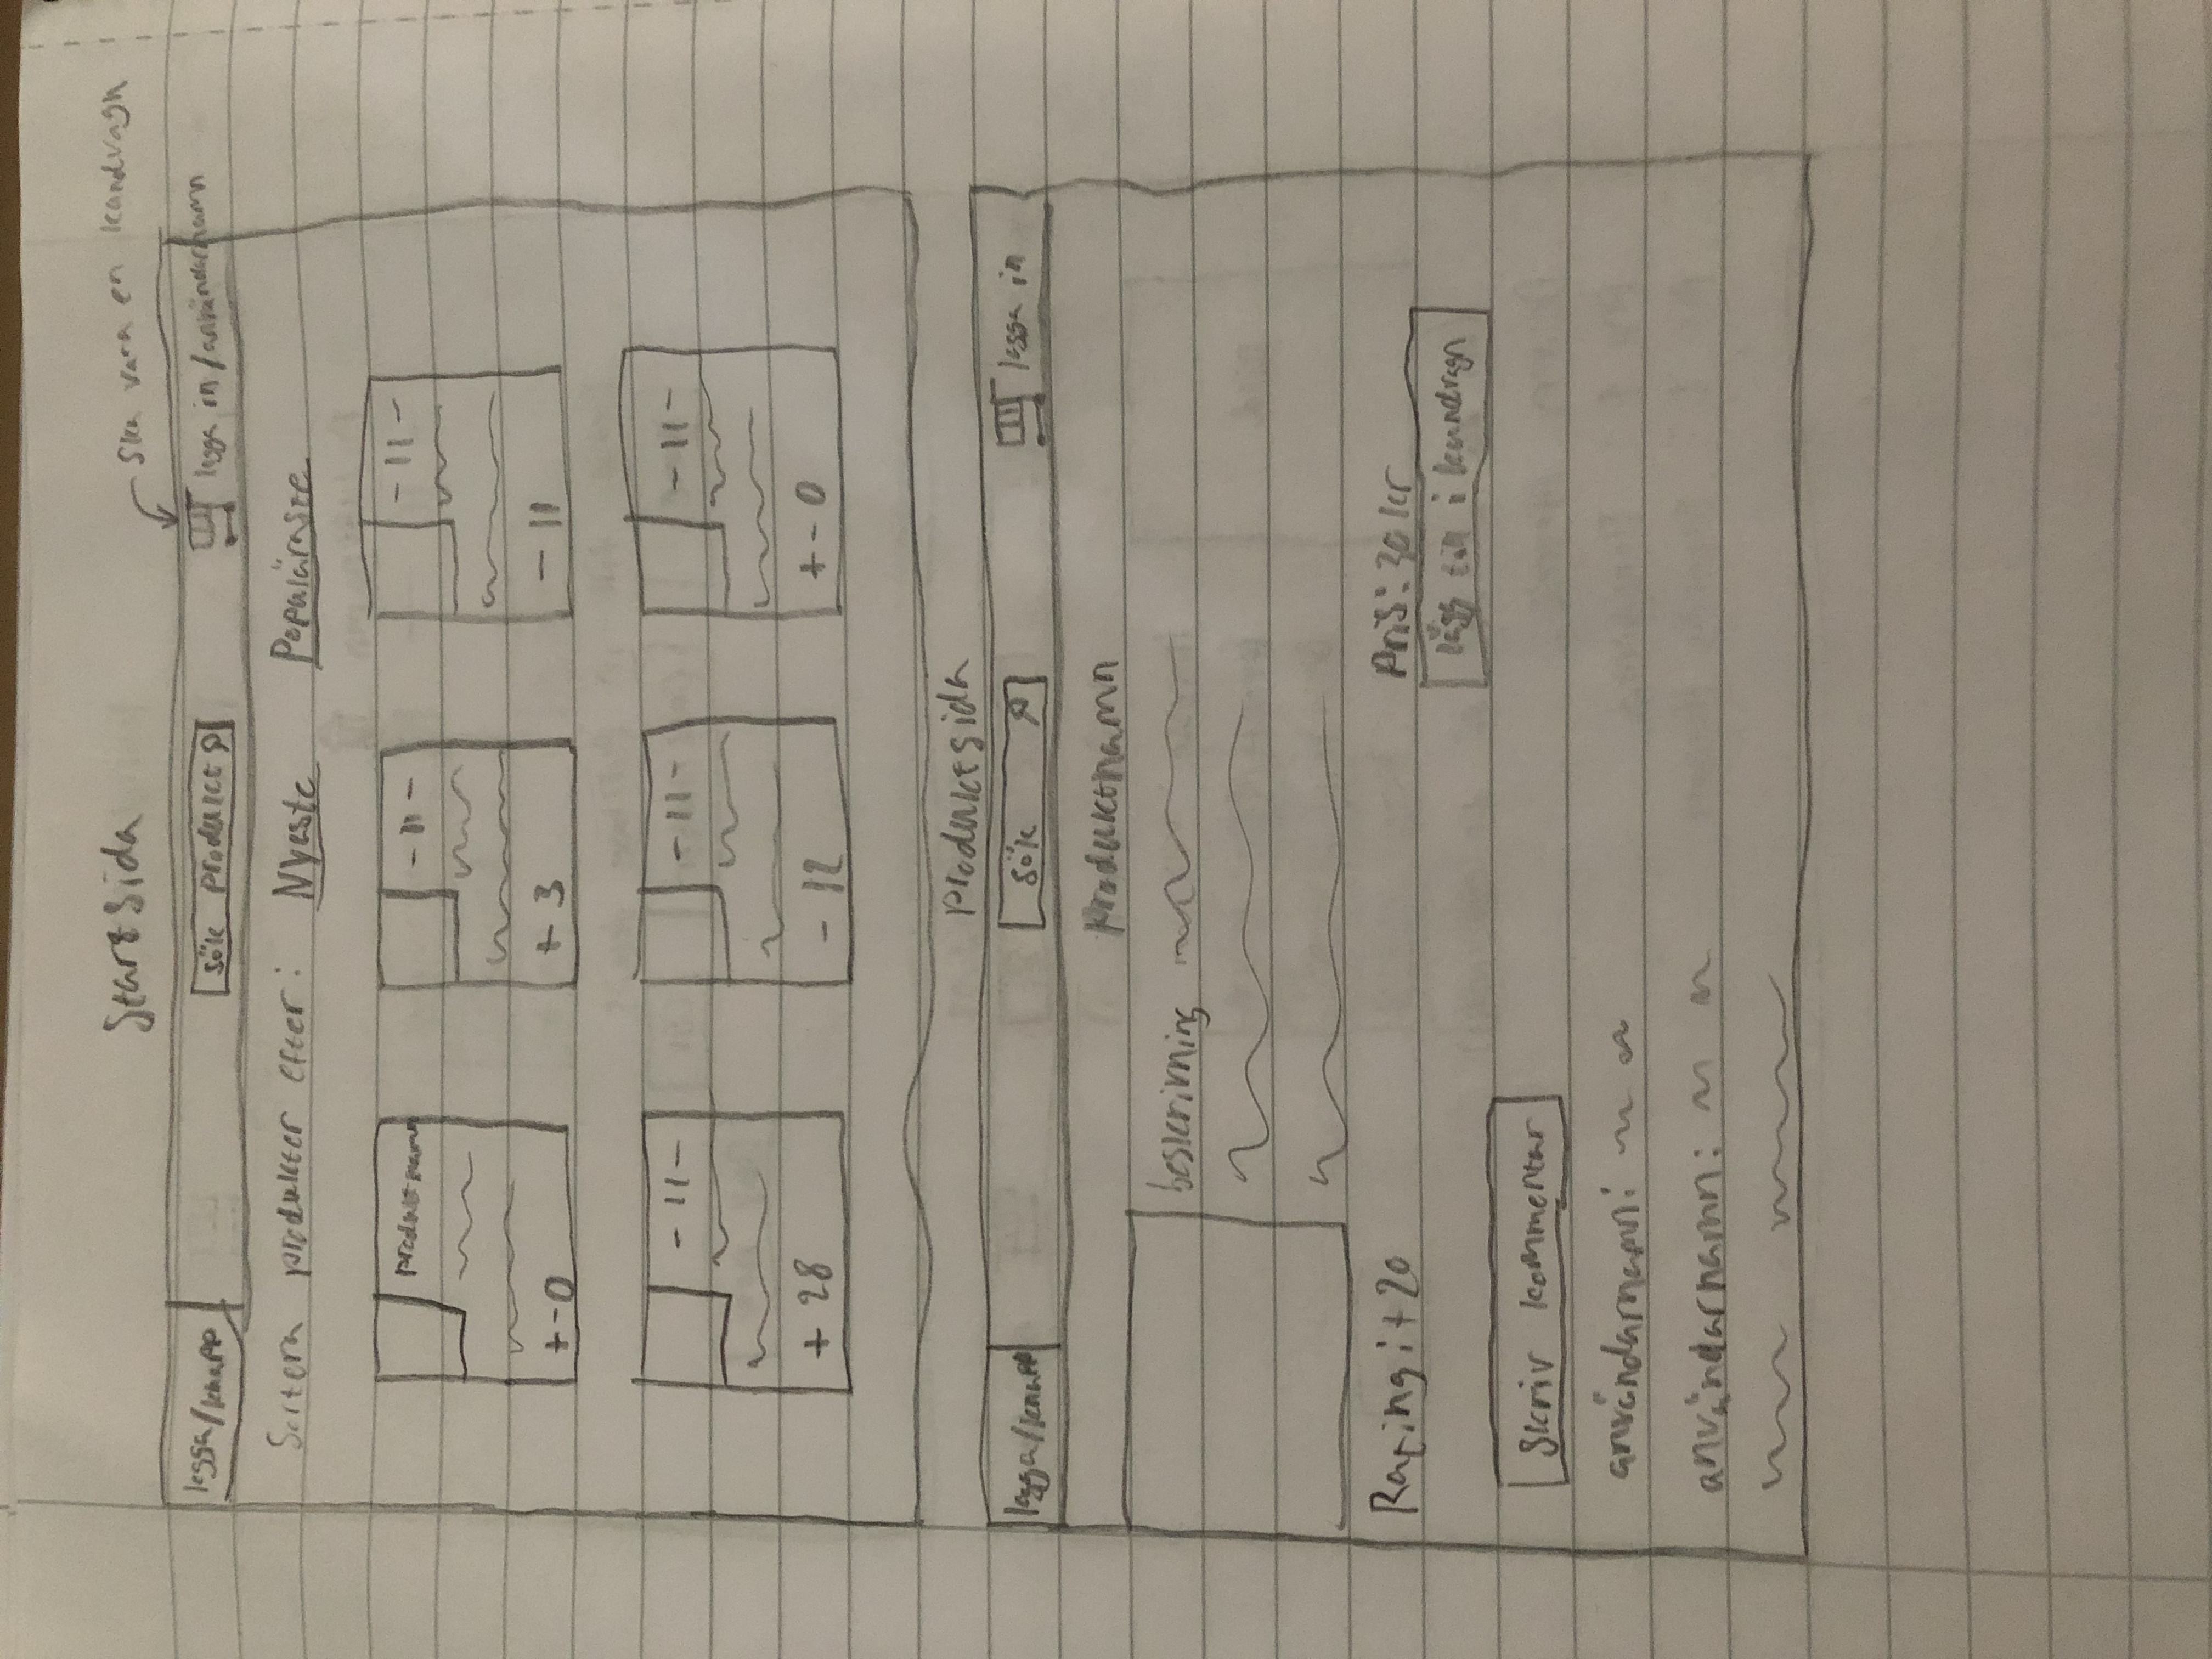 Startsida
Ska vara en kundvagn
logga/knapp sök produkt logga in/användarnamn
Sortera produkter efter: Nyaste Populäraste
produktnamn -11- -11-
+-0 +3 -11
-11- -11- -11-
+28 -12 +-0
Produktsida
logga/knapp sök logga in
Produktnamn
beskrivning
Rating: +20 Pris: 30 kr
lägg till i kundvagn
Skriv kommentar
användarnamn:
användarnamn: